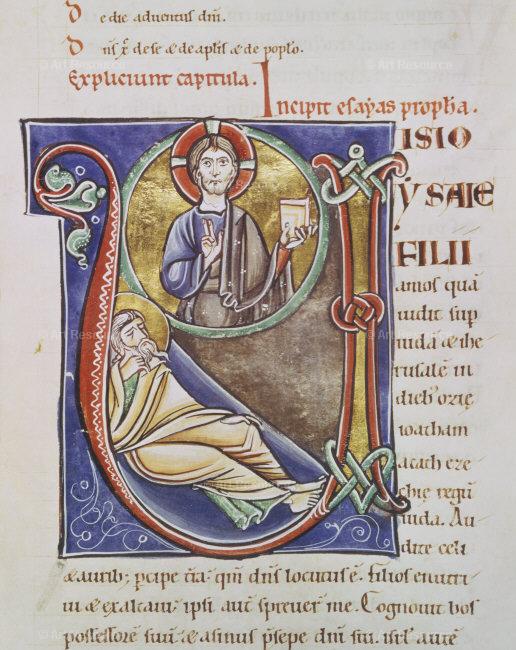 De die adventus dm̄.
Dn̄s xp̄ de se & de aplis & de poplo.
Expliciunt capitula. Incipit esayas propha.
VISIO
YSAIE
FILII
amos quā
uidit sup
iuda & ihe
rusalē in
dieb; ozie
ioatham
acath eze
chie regū
iuda. Au
dite celi
& aurib; pcipe tr̄a. qm̄ dn̄s locutus ē. filios enutri
ui & exaltaui. ipsi aut̄ spreuer̄ me. Cognouit bos
possessorē suū. & asinus p̄sepe dn̄i sui. isrl̄ autē